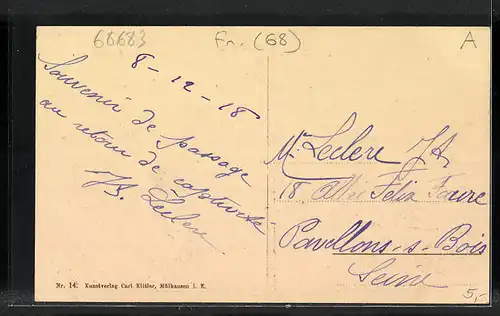 68683
Fr. (68)
A
8-12-18
Souvenir de passage
au retour de captivité
JB. Leclere
M. Leclere JB
18 Allée Felix Faure
Pavillons-s-Bois
Seine
5,-
Nr. 14. Kunstverlag Carl Kittler, Mülhausen i. E.